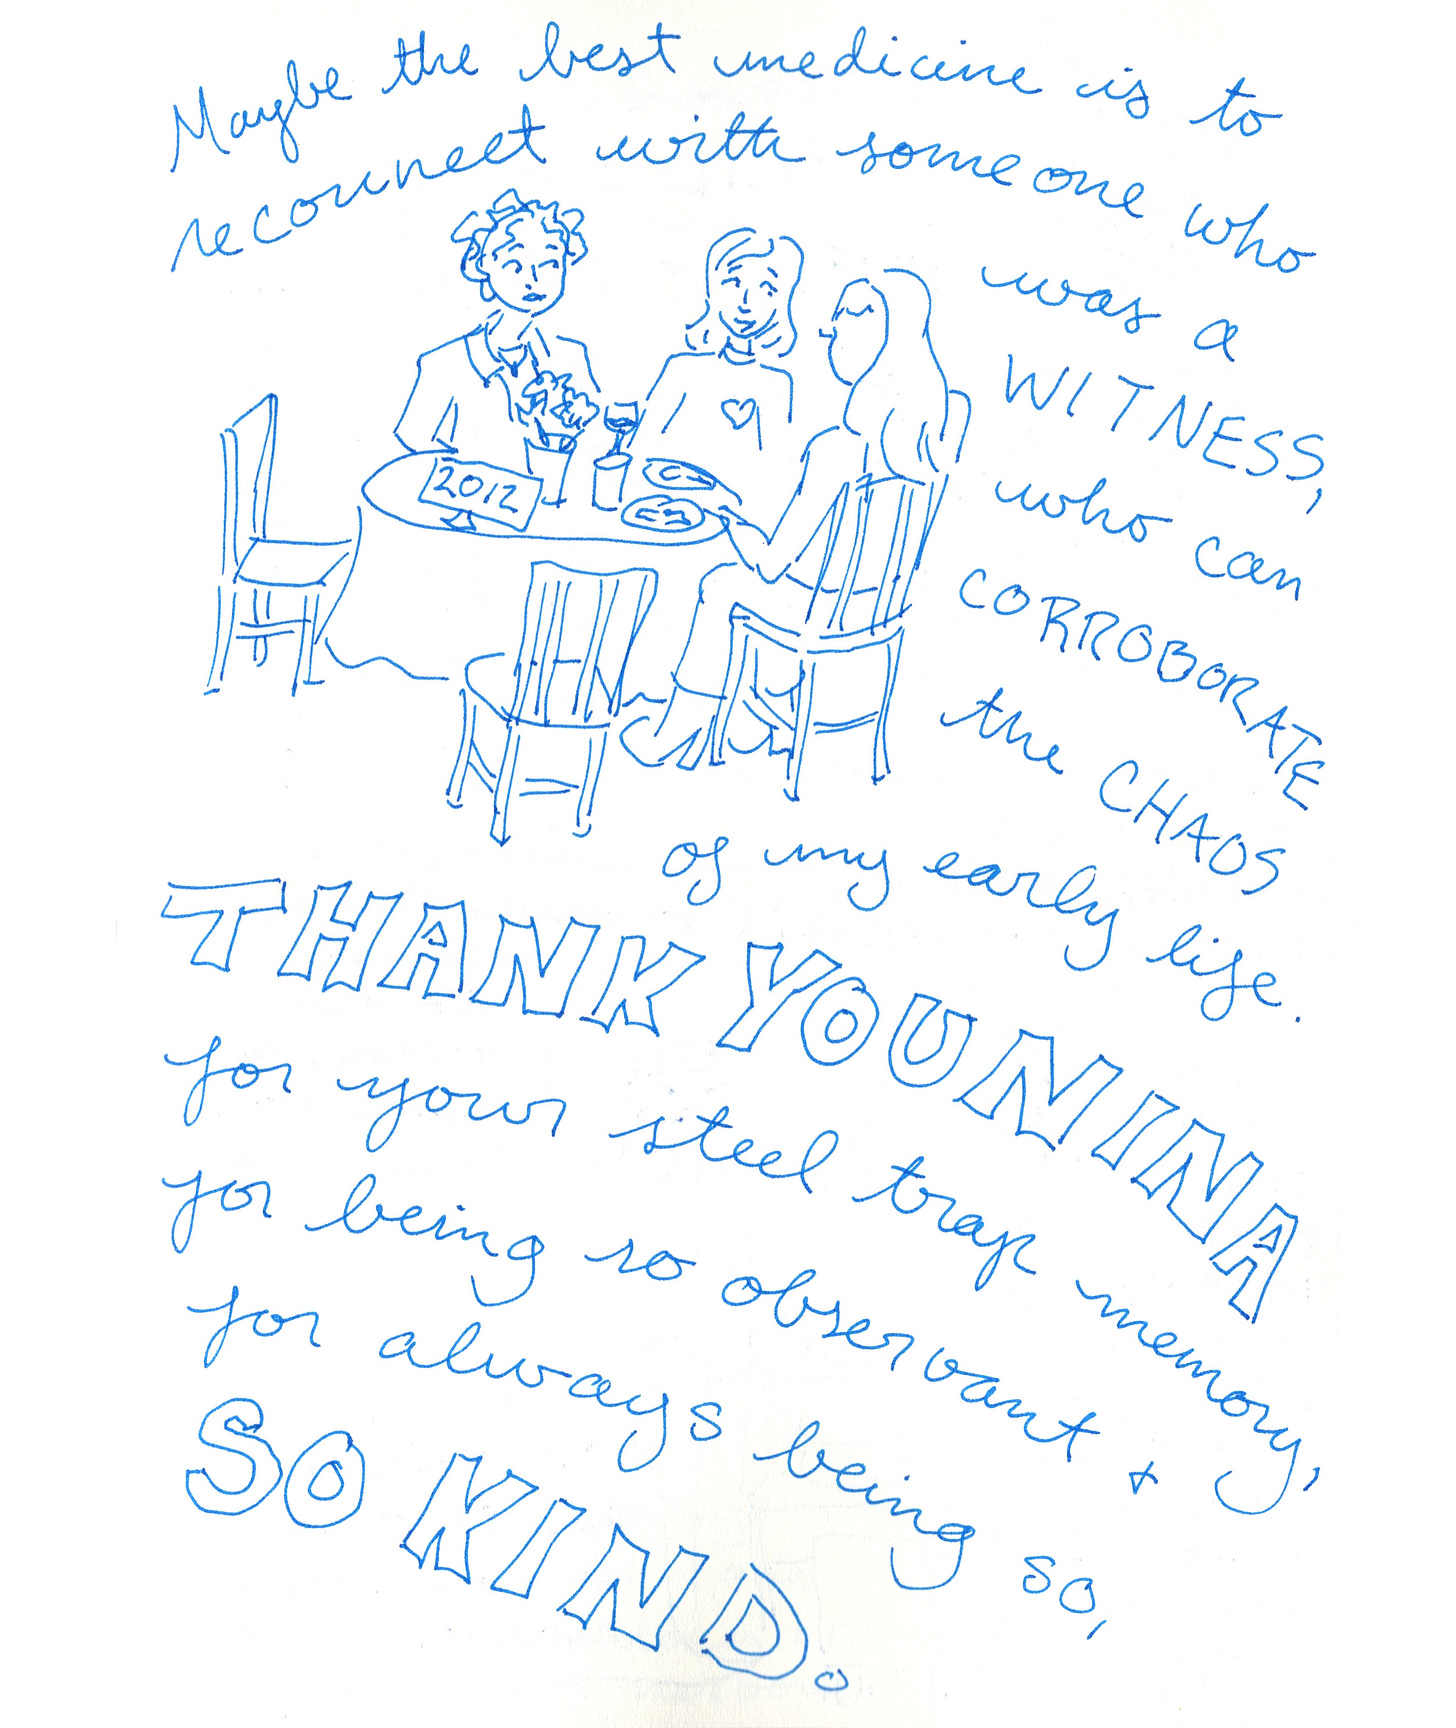 Maybe the best medicine is to
reconnect with someone who
was a
WITNESS,
who can
CORROBORATE
the CHAOS
of my early life.
2012
THANK YOU NINA
for your steel trap memory,
for being so observant +
for always being so,
SO KIND.